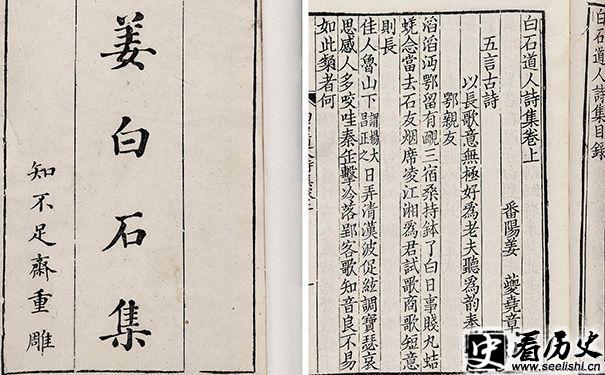 姜白石集
知不足齋重雕
白石道人詩集目録
白石道人詩集卷上
番陽姜 夔堯章
五言古詩
以長歌意無極好爲老夫聽爲韵奉
鄂親友
滔滔沔鄂留有靦三宿桑持鉢了白日事賤丸蛣
蜣念當去石友烟席凌江湘爲君試歌商歌短意
則長
佳人魯山下謂楊大昌正之日弄清漢波促絃調寶瑟哀
思感人多咬哇秦缶擊冷落郢客歌知音良不易
如此纇者何
史看历史
www.seelishi.cn